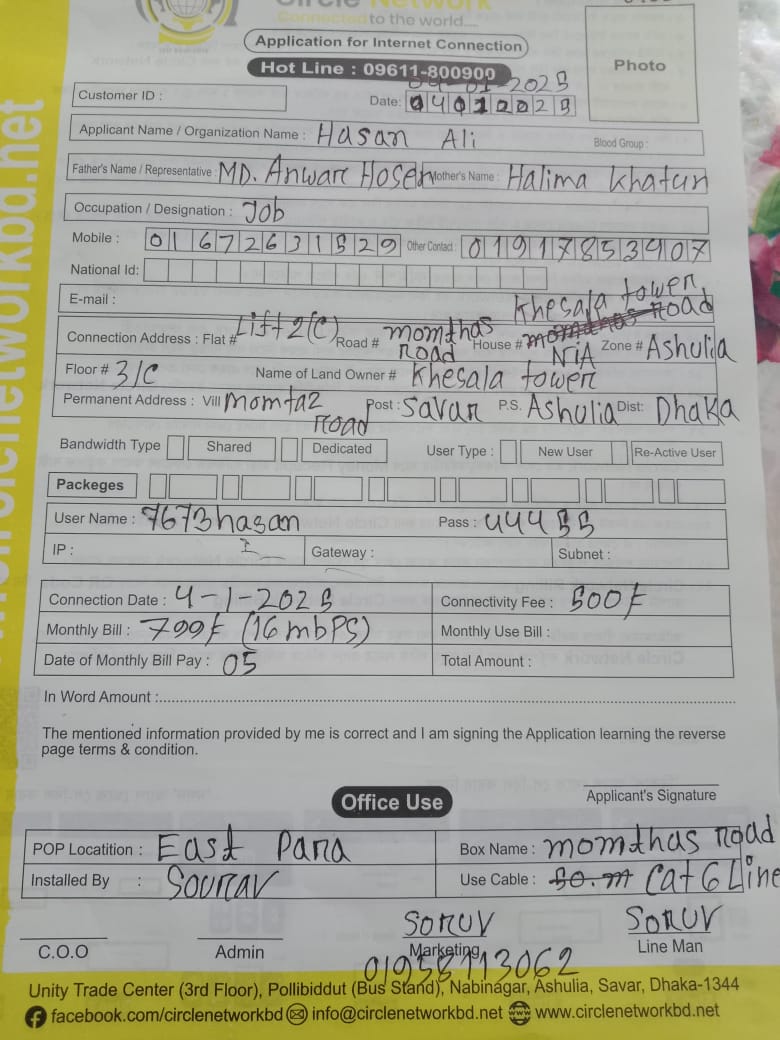 Circle Network
Connected to the world....
Application for Internet Connection
Hot Line : 09611-800900
Photo
04-01-2025
Customer ID :
Date: 04012025
Applicant Name / Organization Name : Hasan Ali Blood Group :
Father's Name / Representative : MD. Anwar Hosen Mother's Name : Halima Khatun
Occupation / Designation : Job
Mobile : 01672631529 Other Contact : 01917853907
National Id:
E-mail :
Khesala tower
Connection Address : Flat # Lift 2(C) Road # momthas Road House # N/A Zone # Ashulia
Floor # 3/C Name of Land Owner # Khesala tower
Permanent Address : Vill momtaz Road Post : Savar P.S. Ashulia Dist: Dhaka
Bandwidth Type Shared Dedicated User Type : New User Re-Active User
Packeges
User Name : 7673hasan Pass : 44455
IP : Gateway : Subnet :
Connection Date : 4-1-2025 Connectivity Fee : 500৳
Monthly Bill : 799৳ (16 mbPS) Monthly Use Bill :
Date of Monthly Bill Pay : 05 Total Amount :
In Word Amount :
The mentioned information provided by me is correct and I am signing the Application learning the reverse
page terms & condition.
Applicant's Signature
Office Use
POP Locatition : East Para Box Name : momthas road
Installed By : Sourav Use Cable : 50.m Cat 6 Line
Soruv Soruv
C.O.O Admin Marketing Line Man
01958113062
Unity Trade Center (3rd Floor), Pollibiddut (Bus Stand), Nabinagar, Ashulia, Savar, Dhaka-1344
facebook.com/circlenetworkbd info@circlenetworkbd.net www.circlenetworkbd.net